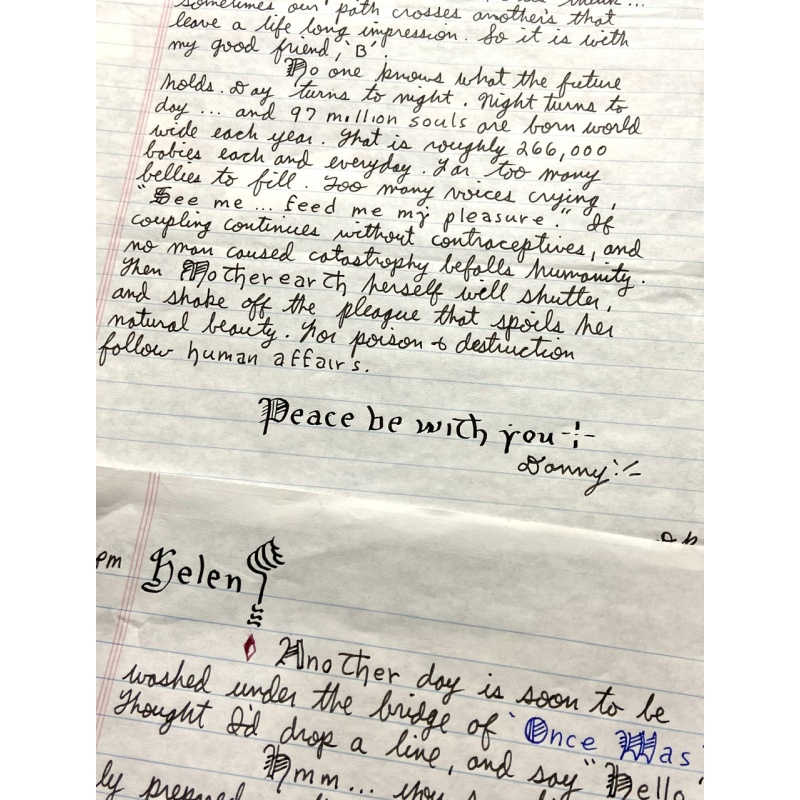 sometimes our path crosses anothers that
leave a life long impression. So it is with
my good friend, 'B'.
No one knows what the future
holds. Day turns to night. Night turns to
day ... and 97 million souls are born world
wide each year. That is roughly 266,000
babies each and everyday. Far too many
bellies to fill. Too many voices crying,
"See me ... feed me my pleasure." If
coupling continues without contraceptives, and
no man caused catastrophy befalls humanity.
Then Mother earth herself will shutter,
and shake off the pleague that spoils her
natural beauty. For poison & destruction
follow human affairs.
Peace be with you
Donny
pm
Helen
Another day is soon to be
washed under the bridge of 'Once Was'
Thought I'd drop a line, and say "Hello"
Hmm... you
ly prepared